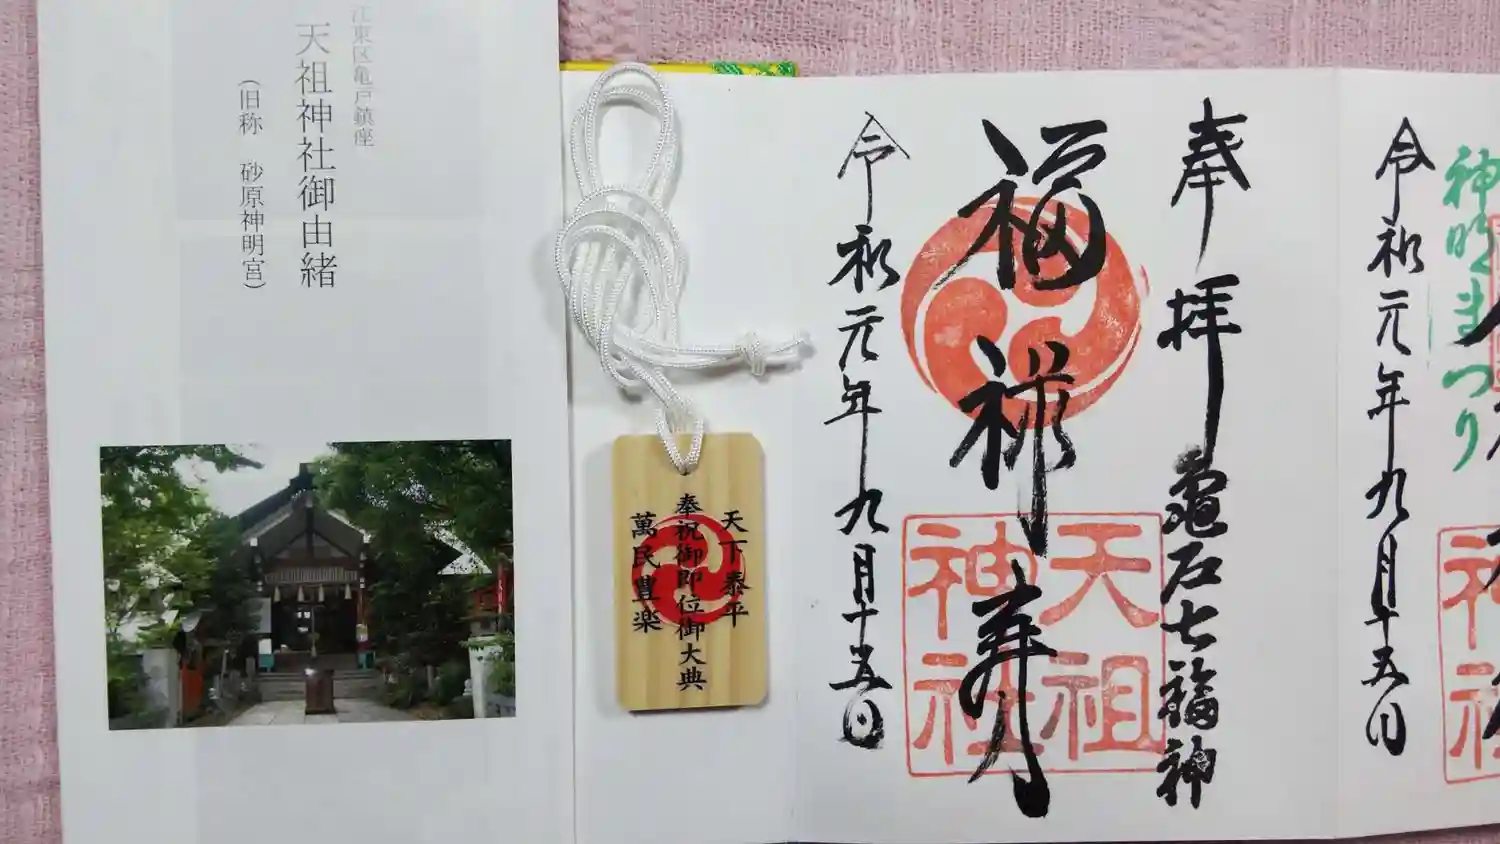 江東区亀戸鎮座
天祖神社御由緒
（旧称　砂原神明宮）
天下泰平
奉祝御即位御大典
萬民豊楽
奉拝
亀戸七福神
福禄寿
天祖
神社
令和元年九月十五日
神明まつり
令和元年九月十五日